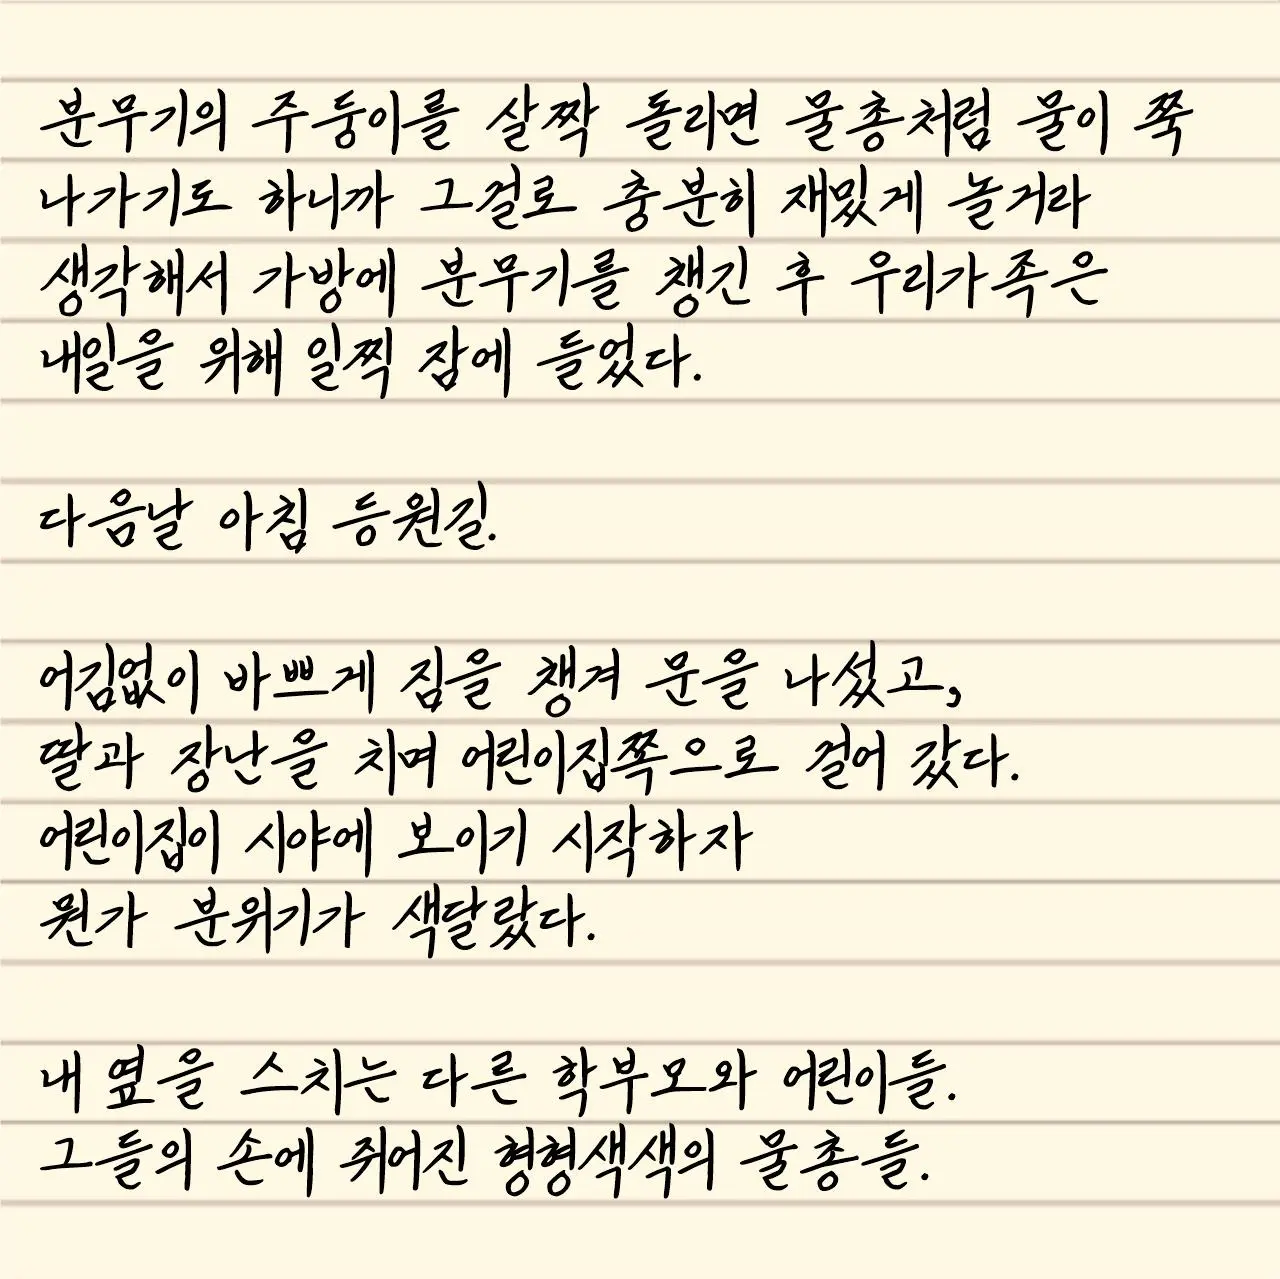 분무기의 주둥이를 살짝 돌리면 물총처럼 물이 쭉
나가기도 하니까 그걸로 충분히 재밌게 놀거라
생각해서 가방에 분무기를 챙긴 후 우리가족은
내일을 위해 일찍 잠에 들었다.
다음날 아침 등원길.
어김없이 바쁘게 짐을 챙겨 문을 나섰고,
딸과 장난을 치며 어린이집쪽으로 걸어 갔다.
어린이집이 시야에 보이기 시작하자
뭔가 분위기가 색달랐다.
내 옆을 스치는 다른 학부모와 어린이들.
그들의 손에 쥐어진 형형색색의 물총들.